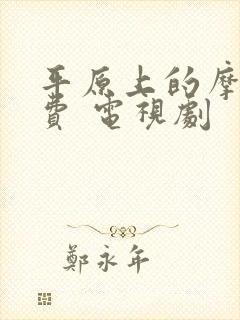 平原上的摩
費 電視劇
鄭永年